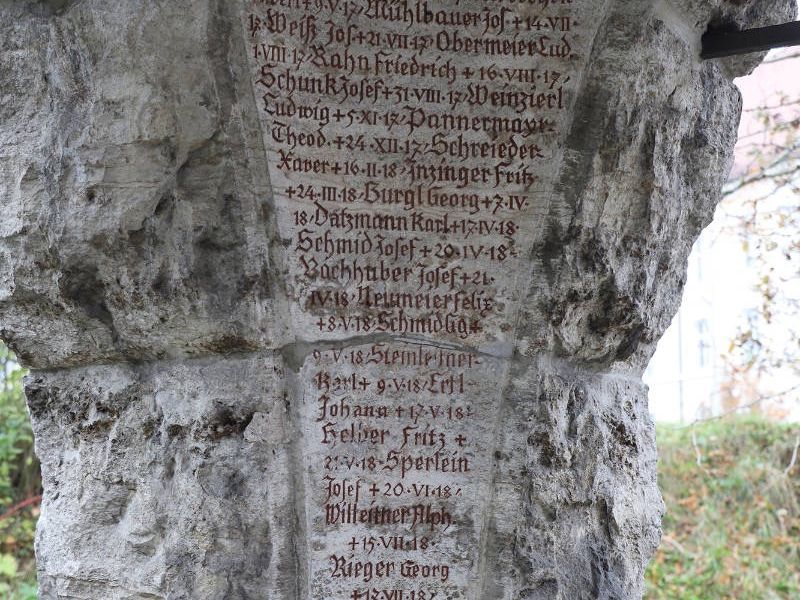 +9·V·17·Mühlbauer Jos·+14·VII·
17·Weiß Jos+21·VII·17·Obermeier Lud.
1·VIII·17·Rahn Friedrich+16·VIII·17·
Schunk Josef+31·VIII·17·Weinzierl
Ludwig+5·XI·17·Pannermayr·
Theod.+24·XII·17·Schreieder·
Xaver+16·II·18·Inzinger Fritz
+24·III·18·Burgl Georg+7·IV·
18·Datzmann Karl+17·IV·18·
Schmid Josef+20·IV·18·
Bachhuber Josef+21·
IV·18·Neumeier Felix
+8·V·18·Schmid Ig+
9·V·18·Steinleitner
Karl+9·V·18·Ertl
Johann+17·V·18·
Helber Fritz+
21·V·18·Sperlein
Josef+20·VI·18·
Willeitner Alph.
+15·VII·18·
Rieger Georg
+17·VII·18·